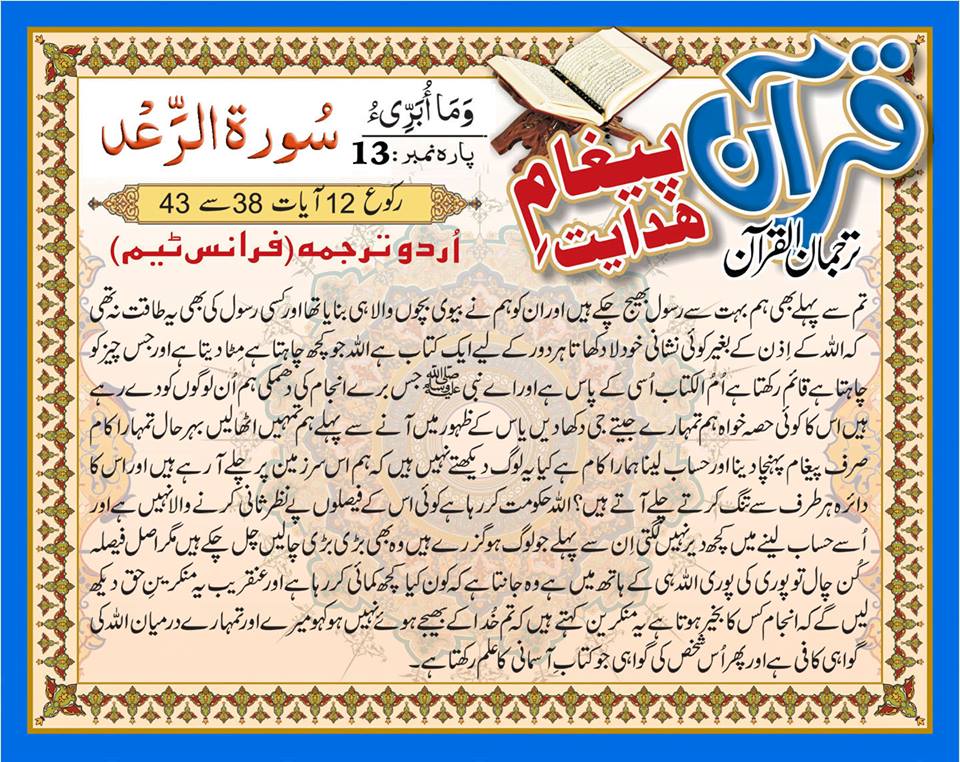 قرآن
پیغامِ
ھدایت
ترجمان القرآن
وَمَا أُبَرِّیءُ
پارہ نمبر: 13
سُورۃ الرَّعْد
رکوع 12 آیات 38 سے 43
اُردو ترجمہ (فرانس ٹیم)
تم سے پہلے بھی ہم بہت سے رسول بھیج چکے ہیں اور ان کو ہم نے بیوی بچوں والا ہی بنایا تھا اور کسی رسول کی بھی یہ طاقت نہ تھی
کہ اللہ کے اِذن کے بغیر کوئی نشانی خود لا دکھاتا ہر دور کے لیے ایک کتاب ہے اللہ جو کچھ چاہتا ہے مٹا دیتا ہے اور جس چیز کو
چاہتا ہے قائم رکھتا ہے اُمُ الکتاب اُسی کے پاس ہے اور اے نبی ﷺ جس برے انجام کی دھمکی ہم اُن لوگوں کو دے رہے
ہیں اس کا کوئی حصہ خواہ ہم تمہارے جیتے جی دکھا دیں یا س کے ظہور میں آنے سے پہلے ہم تمہیں اٹھا لیں بہر حال تمہارا کام
صرف پیغام پہنچا دینا اور حساب لینا ہمارا کام ہے کیا یہ لوگ دیکھتے نہیں ہیں کہ ہم اس سرزمین پر چلے آ رہے ہیں اور اس کا
دائرہ ہر طرف سے تنگ کرتے چلے آتے ہیں؟ اللہ حکومت کر رہا ہے کوئی اس کے فیصلوں پے نظر ثانی کرنے والا نہیں ہے اور
اُسے حساب لینے میں کچھ دیر نہیں لگتی اِن سے پہلے جو لوگ ہو گزرے ہیں وہ بھی بڑی بڑی چالیں چل چکے ہیں مگر اصل فیصلہ
کُن چال تو پوری کی پوری اللہ ہی کے ہاتھ میں ہے وہ جانتا ہے کہ کون کیا کچھ کمائی کر رہا ہے اور عنقریب یہ منکرینِ حق دیکھ
لیں گے کہ انجام کس کا بخیر ہوتا ہے یہ منکرین کہتے ہیں کہ تم خُدا کے بھیجے ہوئے نہیں ہو ہو میرے اور تمہارے درمیان اللہ کی
گواہی کافی ہے اور پھر اُس شخص کی گواہی جو کتابِ آسمانی کا علم رکھتا ہے۔